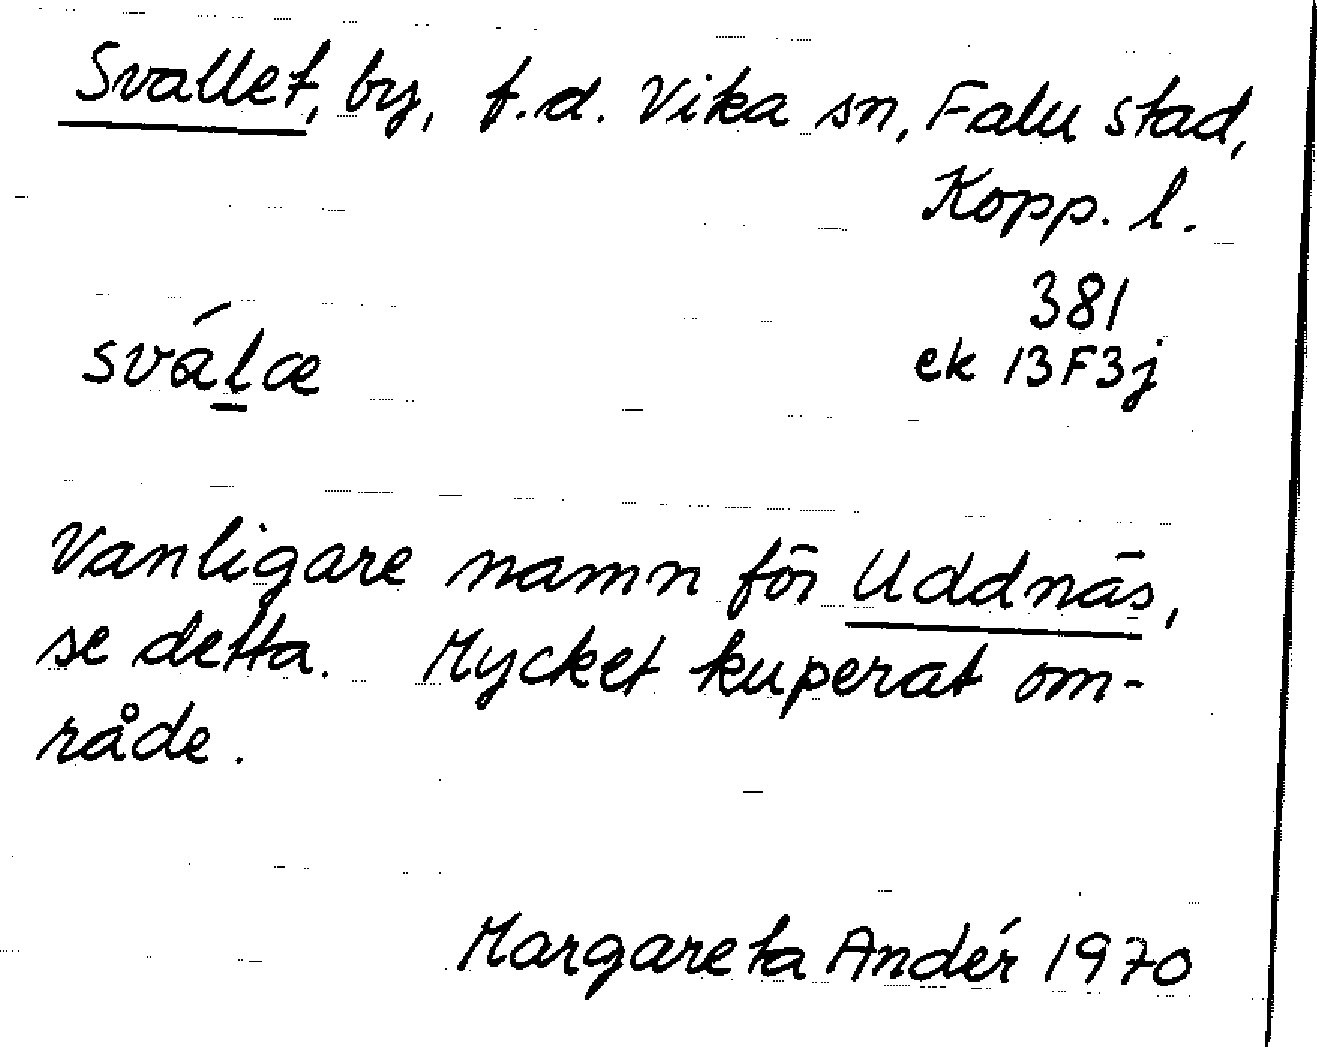 Svallet, by, f.d. Vika sn, Falu stad,
Kopp. l.
381
svál̠æ ek 13F3j
Vanligare namn för Uddnäs,
se detta. Mycket kuperat om-
råde.
Margareta Andér 1970